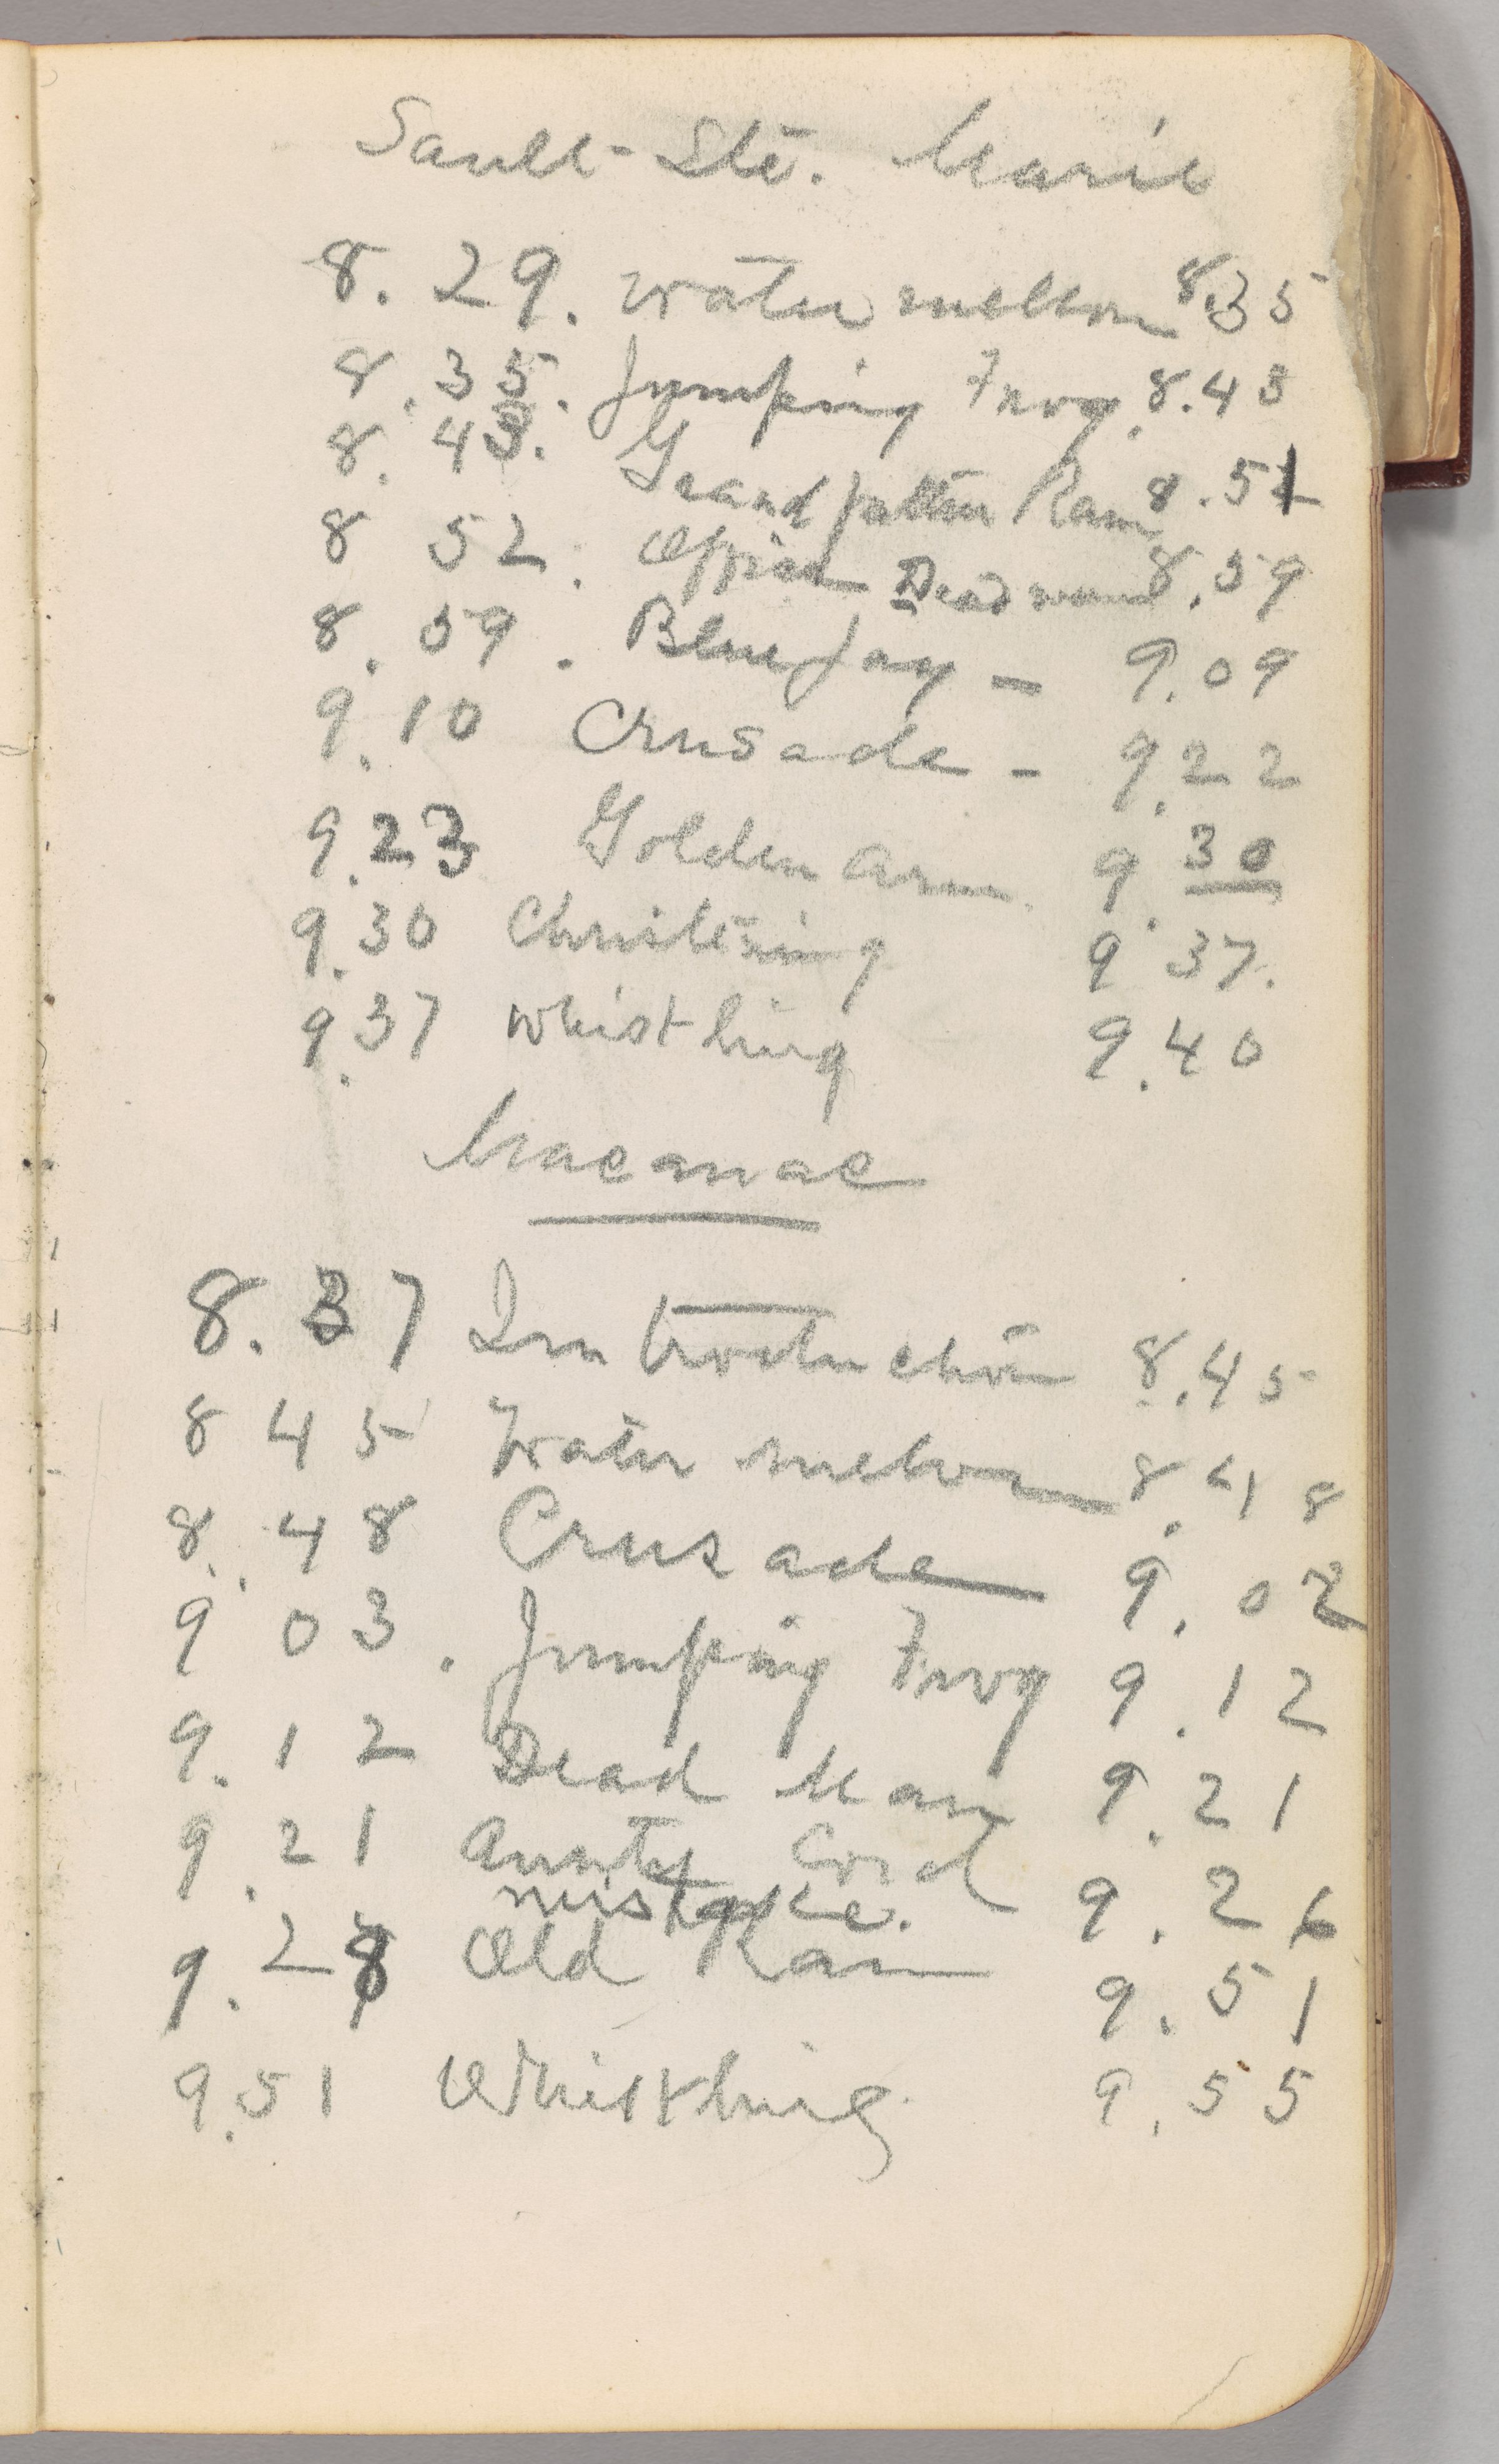 Sault-Ste. Marie
8. 29. water mellon 8.35
8.35. Jumping Frog. 8.43
8. 43. Grandfather Ram 8.51
8 52. Dead man 8.59
8. 59. Blue Jay — 9.09
9.10 Crusade - 9.22
9.23 Golden Arm. 9.30
9.30 Christening 9.37.
9.37 Whistling 9.40
Macanac
8. 37 Introduction 8.45
8 45 Water melon 8.48
8.48 Crusade 9.02
9 03. Jumping Frog 9.12
9. 12 Dead Man 9.21
9.21 Aunty Cord 9.26
mistake.
9.28 Old Ram 9.51
9.51 Whistling 9.55